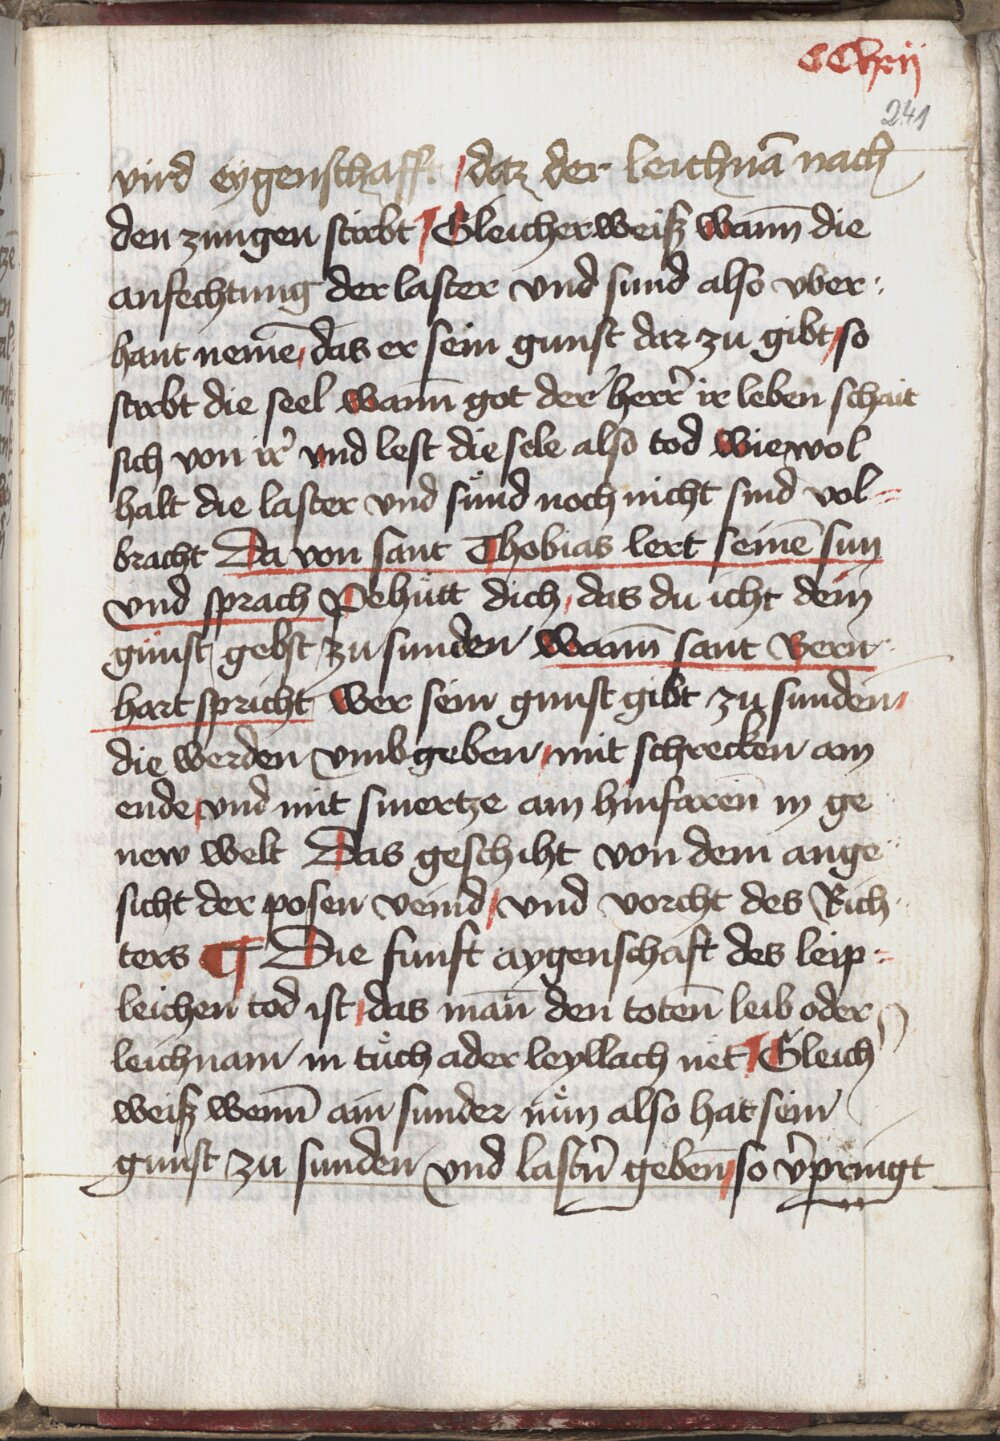 CClxij
241
vird eygenschafft / daz der leichnā nach
den zungen stirbt / Gleicherweiß wann̄ die
anfechtung der laster vnd sund also vber:
hant nemē / das er sein gunst dar zu gibt / so
stirbt die seel wann̄ got der herr̄ ir leben schait
sich von ir̄ vnd lest die sele also tod wiewol
halt die laster vnd sünd noch nicht sind vol=
bracht Da von sant Thobias lert seinē sun
vnd sprach Pehütt dich / das du icht dein
gunst gebst zu sunden wann̄ sant Bern
hart spricht wer sein gunst gibt zu sunden /
die werden vmbgeben / mit schrecken am
ende / vnd mit smertze am hinfaren̄ in ge
new welt Das geschiht von dem ange
sicht der posen veind / vnd vorcht des Rich
ters ¶ Die funft aygenschaft des leip=
leichen tod ist / das man̄ den toten̄ leib oder
leichnam in tuͤch ader leyllach net / Gleich
weiß wenn̄ ain sunder nuͤn also hat sein
gunst zu sunden vnd lastn̄ geben̄ / so v̄pringt